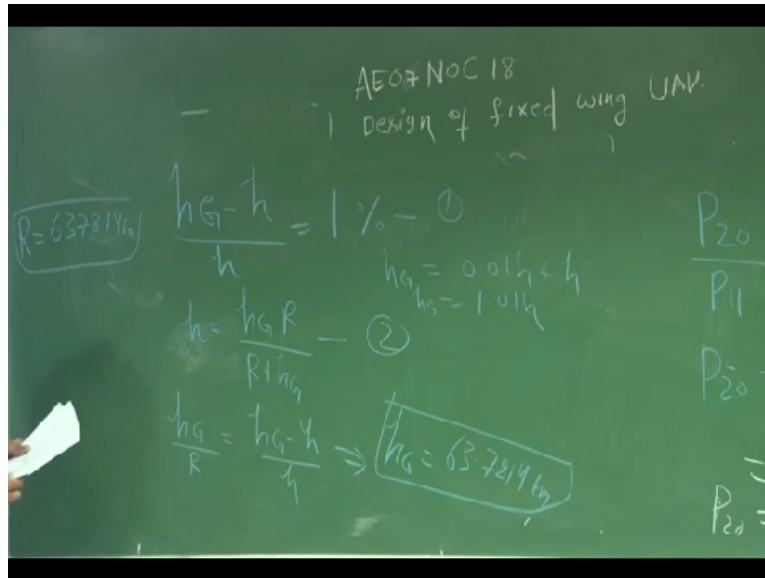 AE07NOC18
Design of fixed wing UAV.
R = 6378.14 km
hG - h / h = 1% - ①
hG = 0.01h + h
hG = 1.01h
h = hG R / R + hG - ②
hG / R = hG - h / h ⇒ hG = 63.7814 km
P20 / P11
P20
P20 =